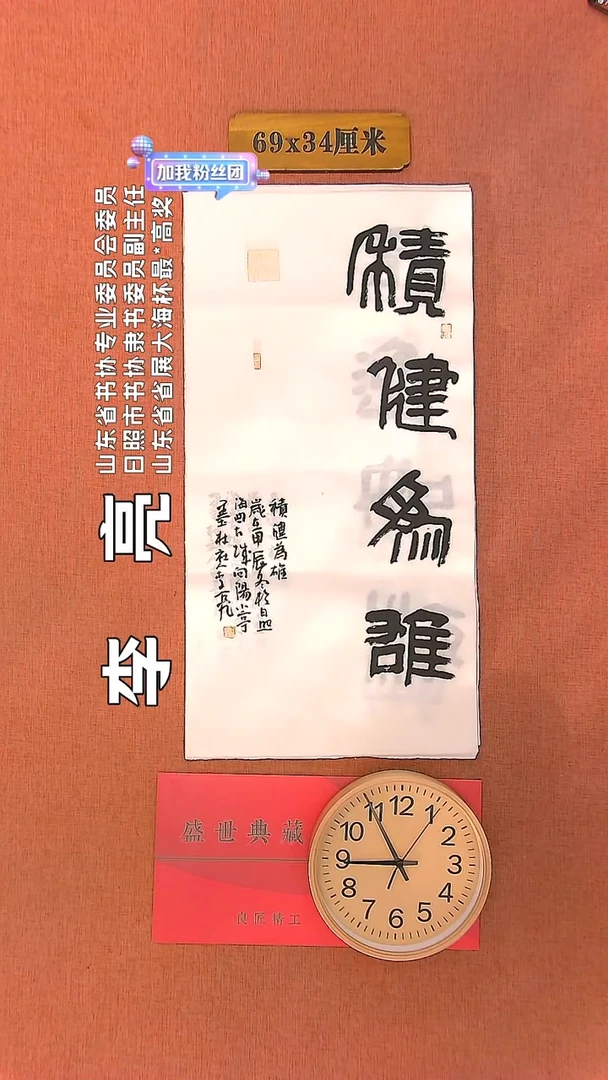 69x34厘米
加我粉丝团
山东省书协专业委员会委员
日照市书协隶书委员副主任
山东省省展大海杯最*高奖
李亮
積健為雄
積健為雄
歲在甲辰冬於日照
向陽小亭
盛世典藏
良匠精工
12
1
2
3
4
5
6
7
8
9
10
11